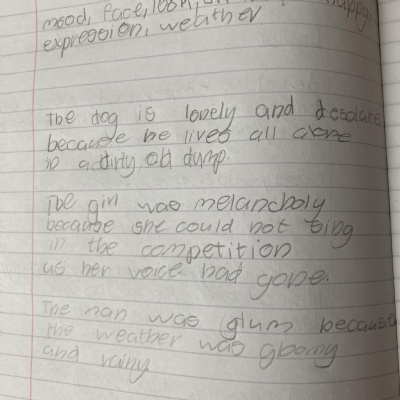 mood, face, look, happy,
expression, weather
The dog is lonely and desolate
because he lives all alone
in a dirty old dump.
The girl was melancholy
because she could not sing
in the competition
as her voice had gone.
The man was glum because
the weather was gloomy
and rainy